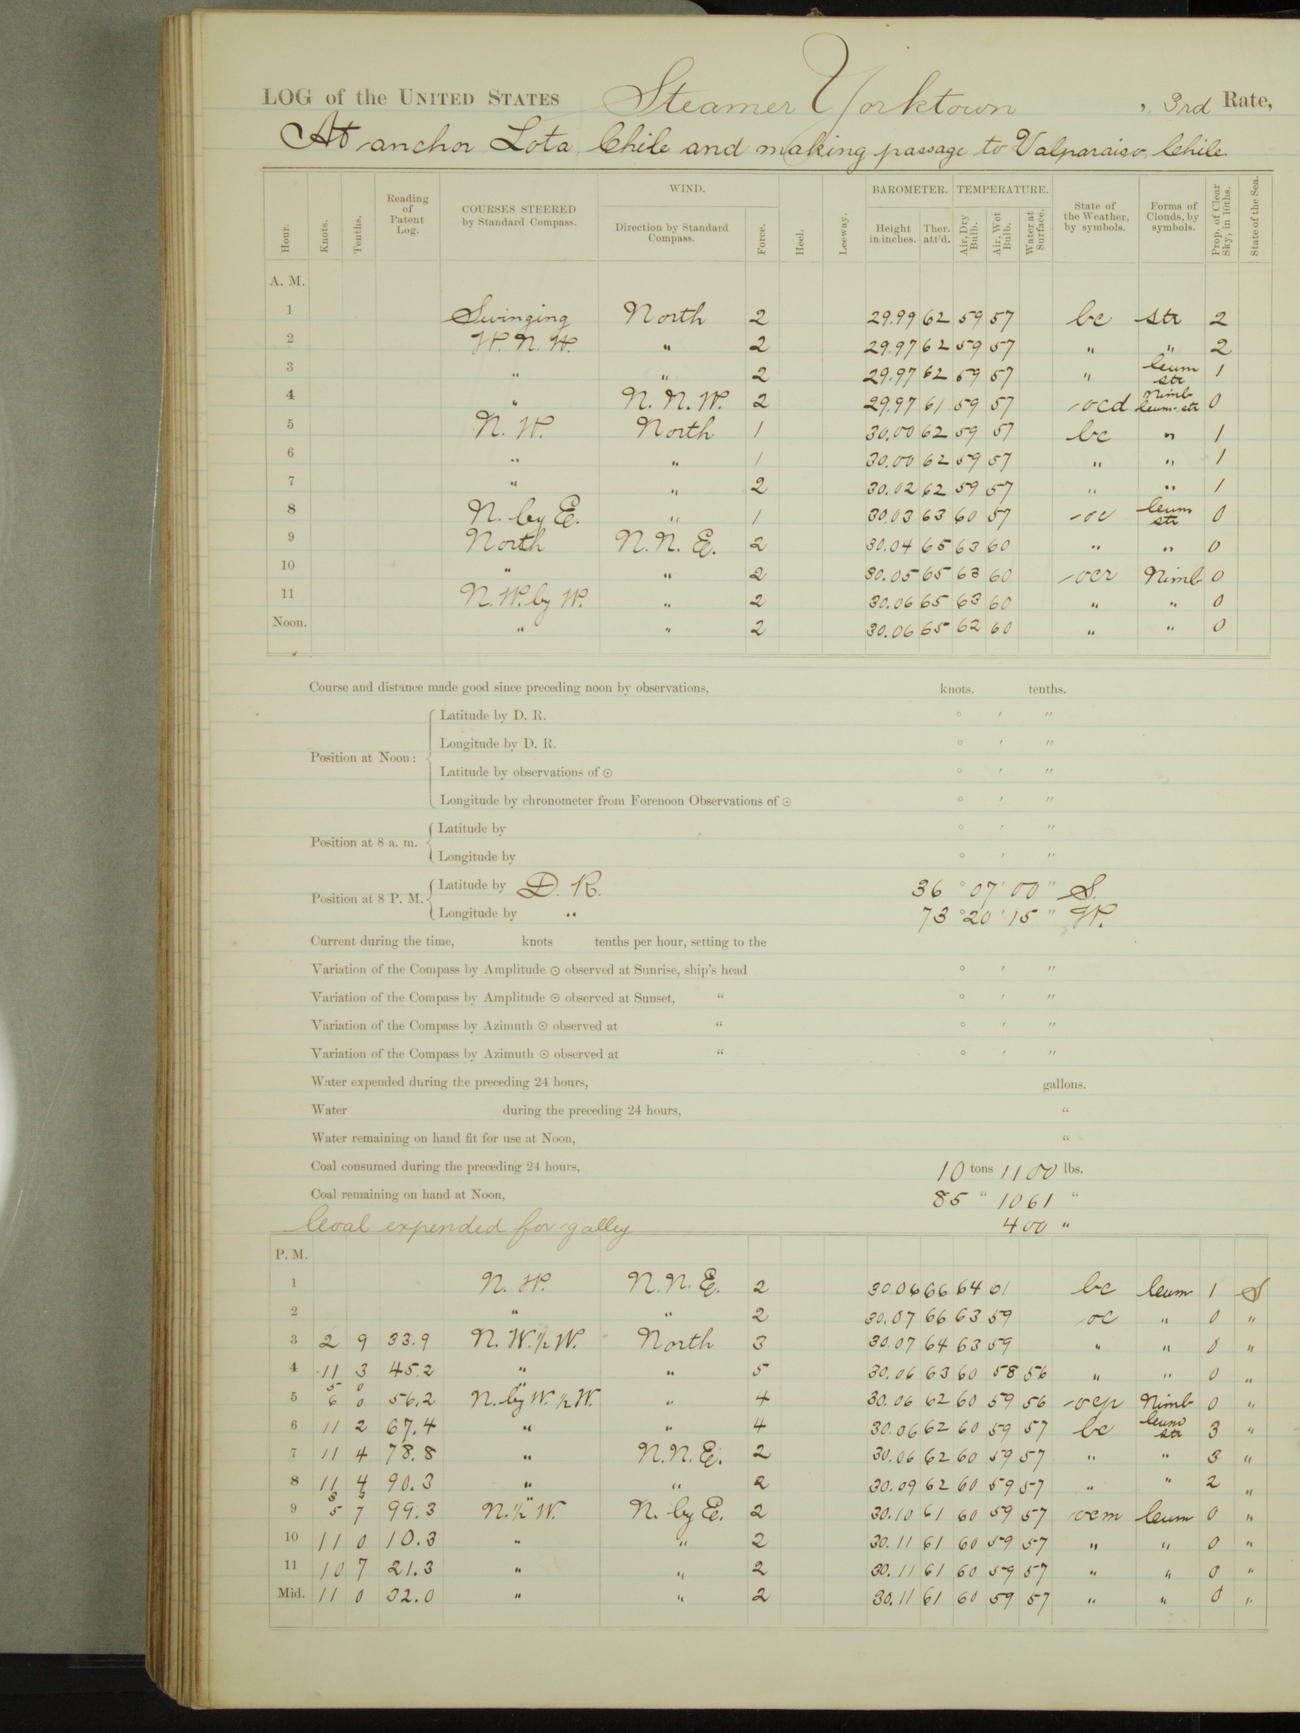 LOG of the UNITED STATES Steamer Yorktown , 3rd Rate,
At anchor Lota Chile and making passage to Valparaiso, Chile.
Hour. Knots. Tenths. Reading of Patent Log. COURSES STEERED by Standard Compass. WIND. Direction by Standard Compass. Force. Heel. Leeway. BAROMETER. Height in inches. Ther. att'd. TEMPERATURE. Air, Dry Bulb. Air, Wet Bulb. Water at Surface. State of the Weather, by symbols. Forms of Clouds, by symbols. Prop. of Clear Sky, in 10ths. State of the Sea.
A. M.
1 Swinging North 2 29.99 62 59 57 bc str 2
2 W.N.W. " 2 29.97 62 59 57 " " 2
3 " " 2 29.97 62 59 57 " Cum str 1
4 " N.N.W. 2 29.97 61 59 57 ocd Nimb Cum-str 0
5 N.W. North 1 30.00 62 59 57 bc " 1
6 " " 1 30.00 62 59 57 " " 1
7 " " 2 30.02 62 59 57 " " 1
8 N. by E. " 1 30.03 63 60 57 oc Cum str 0
9 North N.N.E. 2 30.04 65 63 60 " " 0
10 " " 2 30.05 65 63 60 ocr Nimb 0
11 N.W. by W. " 2 30.06 65 63 60 " " 0
Noon. " " 2 30.06 65 62 60 " " 0
Course and distance made good since preceding noon by observations, knots. tenths.
Position at Noon:
Latitude by D. R. ° ' "
Longitude by D. R. ° ' "
Latitude by observations of ☉ ° ' "
Longitude by chronometer from Forenoon Observations of ☉ ° ' "
Position at 8 a. m.
Latitude by ° ' "
Longitude by ° ' "
Position at 8 P. M.
Latitude by D. R. 36 ° 07 ' 00 " S.
Longitude by " 73 ° 20 ' 15 " W.
Current during the time, knots tenths per hour, setting to the
Variation of the Compass by Amplitude ☉ observed at Sunrise, ship's head ° ' "
Variation of the Compass by Amplitude ☉ observed at Sunset, " ° ' "
Variation of the Compass by Azimuth ☉ observed at " ° ' "
Variation of the Compass by Azimuth ☉ observed at " ° ' "
Water expended during the preceding 24 hours, gallons.
Water during the preceding 24 hours, "
Water remaining on hand fit for use at Noon, "
Coal consumed during the preceding 24 hours, 10 tons 1100 lbs.
Coal remaining on hand at Noon, 85 " 1061 "
Coal expended for galley 400 "
P. M.
1 N.W. N.N.E. 2 30.06 66 64 61 bc Cum 1 S
2 " " 2 30.07 66 63 59 oc " 0 "
3 2 9 33.9 N.W.½W. North 3 30.07 64 63 59 " " 0 "
4 11 3 45.2 " " 5 30.06 63 60 58 56 " " 0 "
5 5 0 6 0 56.2 N. by W.½W. " 4 30.06 62 60 59 56 ocp Nimb 0 "
6 11 2 67.4 " " 4 30.06 62 60 59 57 bc Cum str 3 "
7 11 4 78.8 " N.N.E. 2 30.06 62 60 59 57 " " 3 "
8 11 4 90.3 " " 2 30.09 62 60 59 57 " " 2 "
9 3 3 5 7 99.3 N.½W. N. by E. 2 30.10 61 60 59 57 ocm Cum 0 "
10 11 0 10.3 " " 2 30.11 61 60 59 57 " " 0 "
11 10 7 21.3 " " 2 30.11 61 60 59 57 " " 0 "
Mid. 11 0 32.0 " " 2 30.11 61 60 59 57 " " 0 "